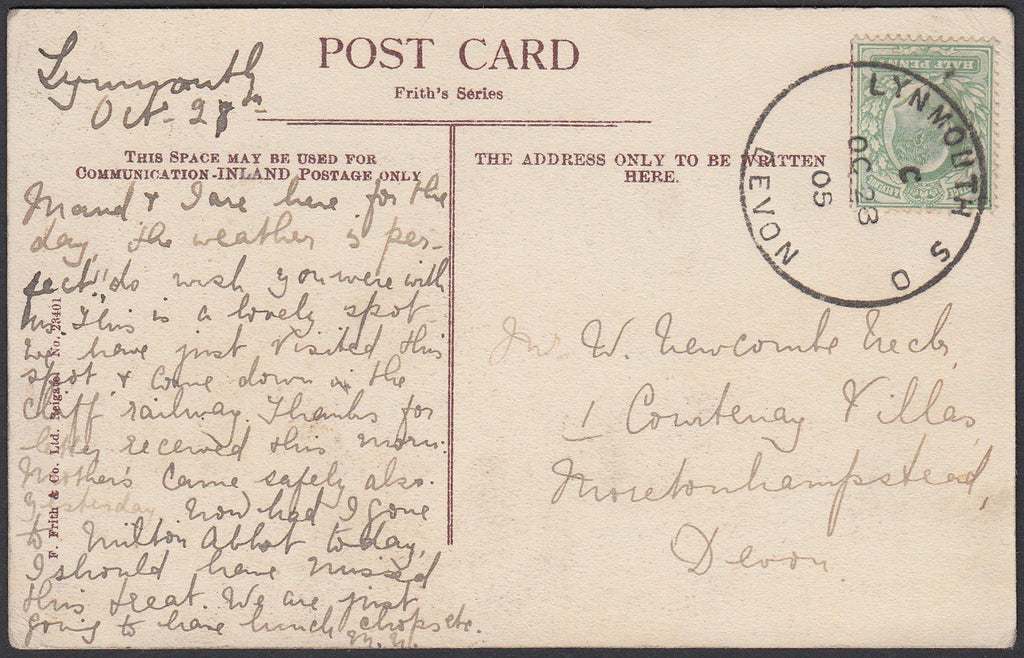 Lynmouth
Oct. 28th
POST CARD
Frith's Series
THIS SPACE MAY BE USED FOR
COMMUNICATION-INLAND POSTAGE ONLY
THE ADDRESS ONLY TO BE WRITTEN
HERE.
Maud & I are here for the
day, the weather is per-
fect" do wish you were with
us. This is a lovely spot
We have just visited this
spot & come down in the
Cliff railway. Thanks for
letter received this morn.
Mother's came safely also.
Yesterday. Now had I gone
to Milton Abbot today,
I should have missed
this treat. We are just
going to have lunch chops etc.
M. N.
F. Frith & Co. Ltd. Reigate. No. 23401
HALF PENNY
LYNMOUTH S O
C
OC 28
05
DEVON
Mr W. Newcombe
1 Courtenay Villas,
Moretonhampstead,
Devon.